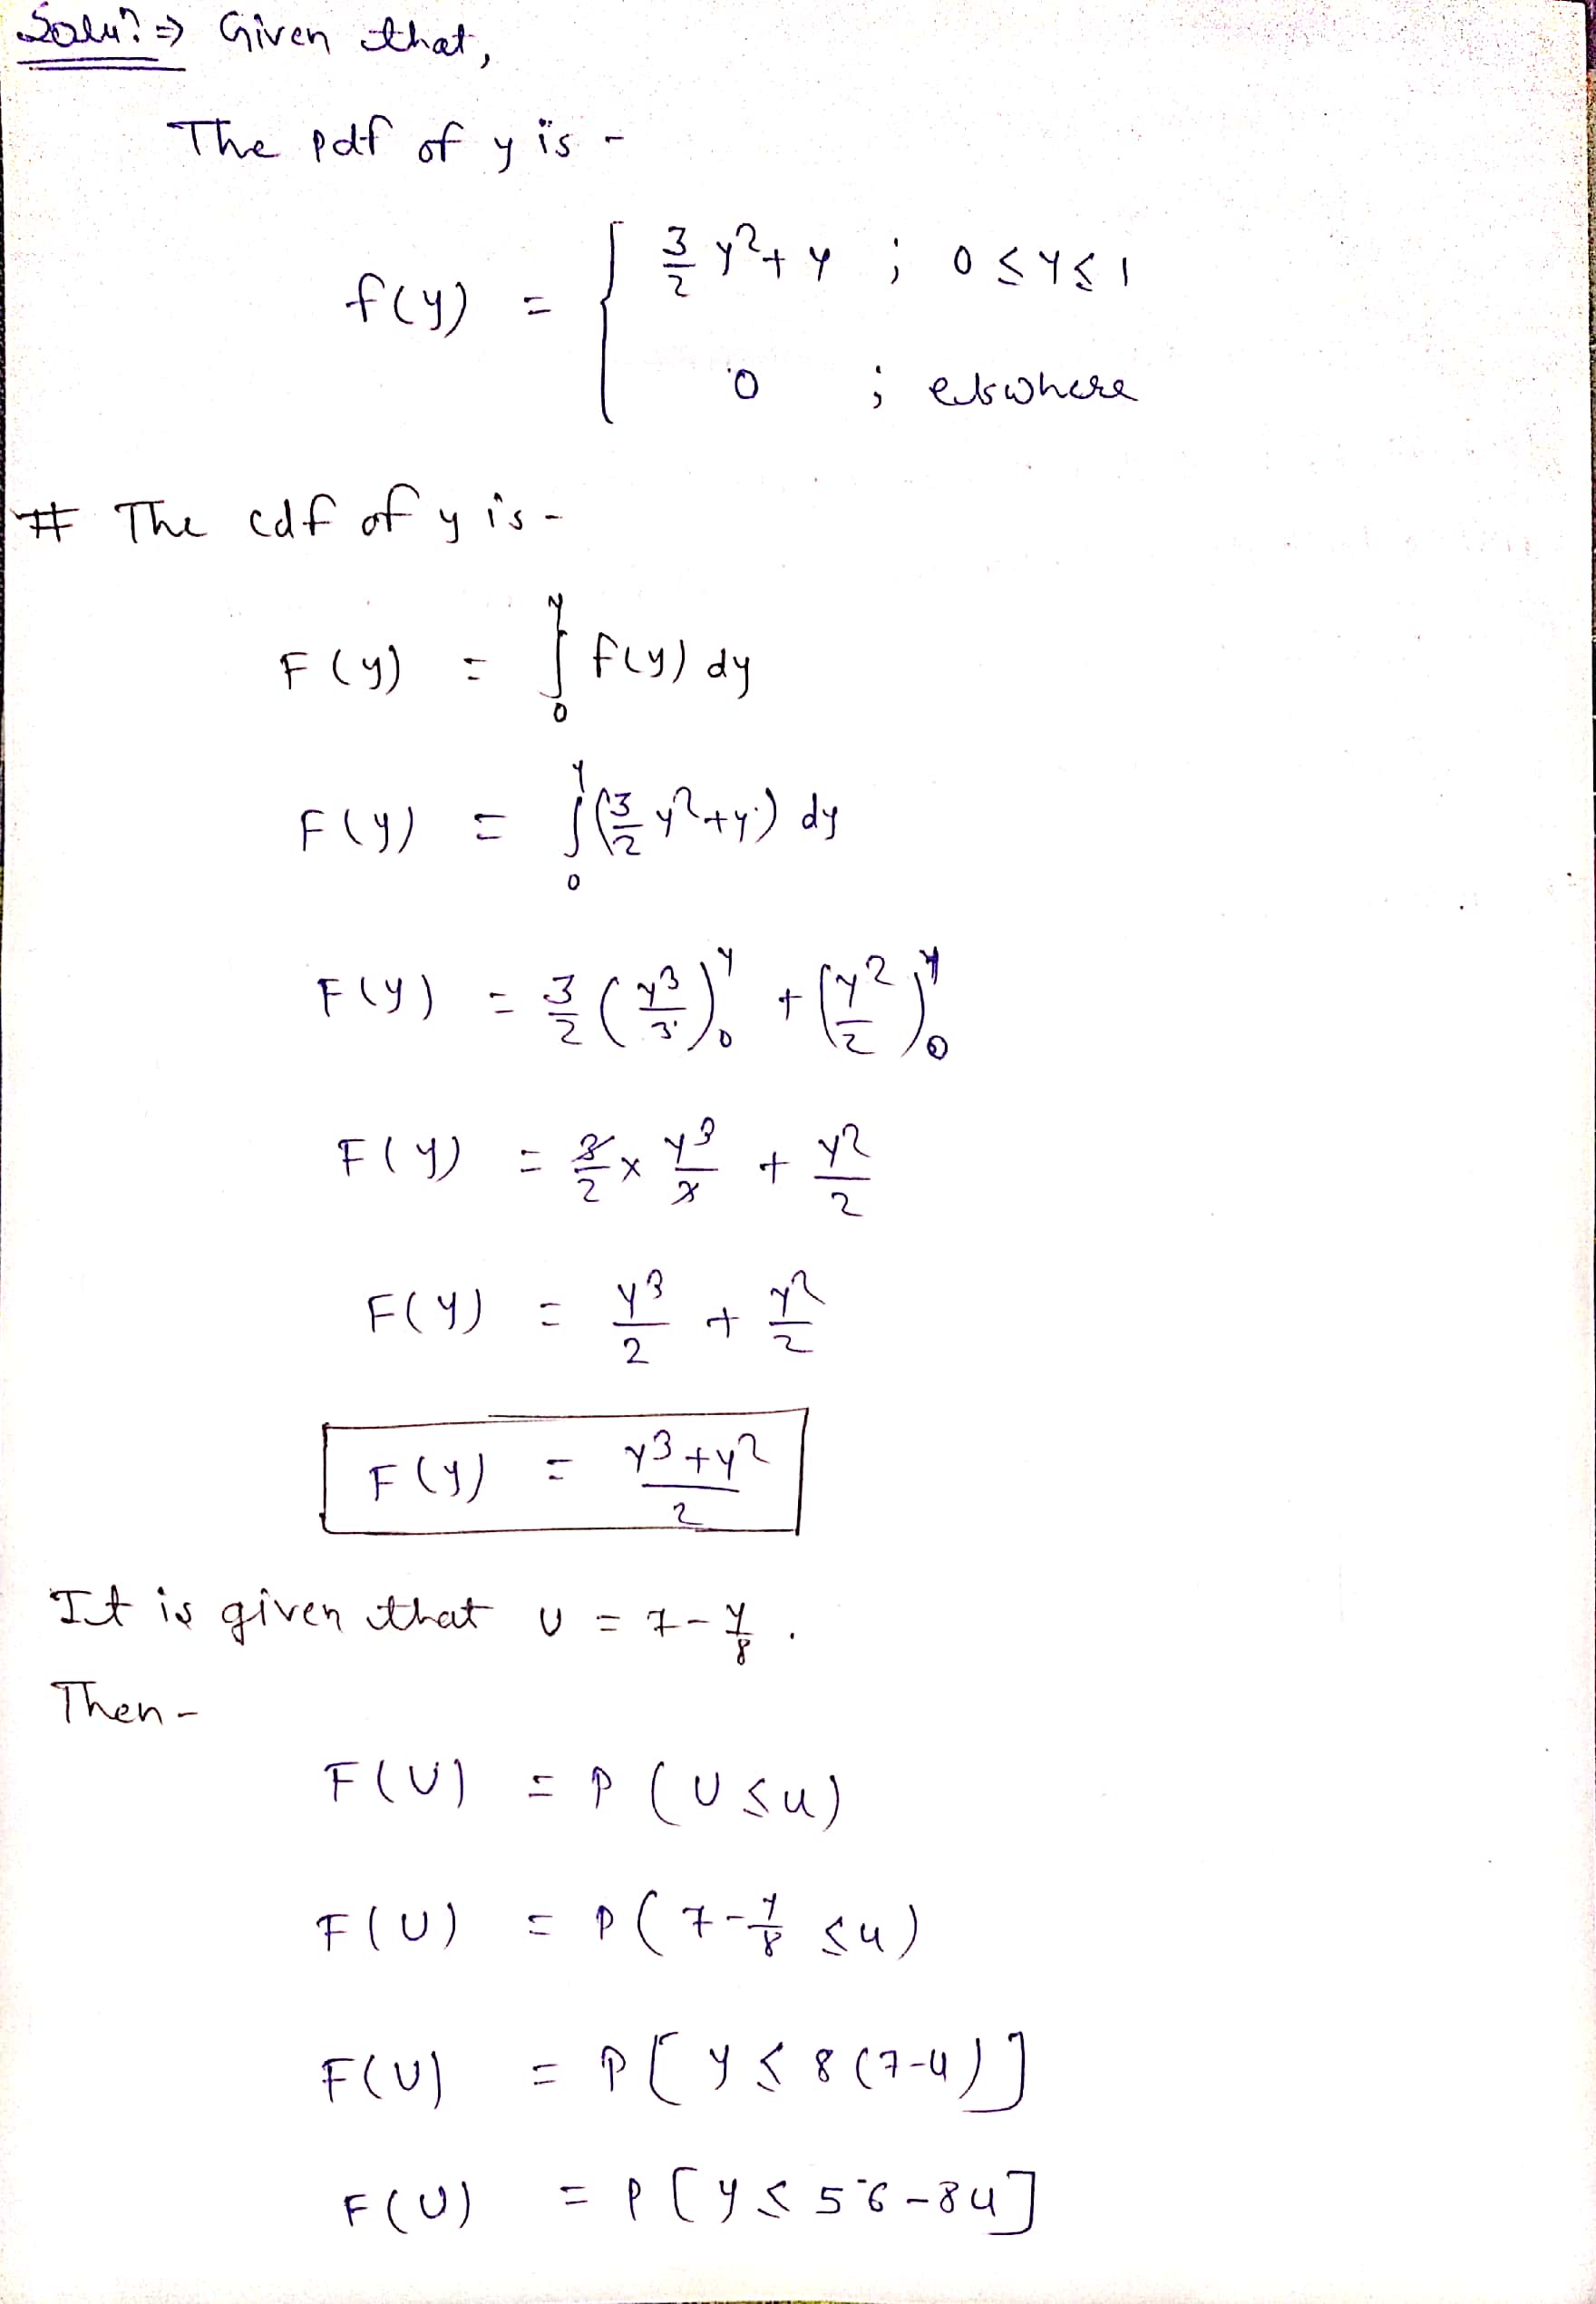 Solun ⇒ Given that,
The pdf of y is -
f(y) = { 3/2 y² + y ; 0 ≤ y ≤ 1
0 ; elswhere
# The cdf of y is -
F(y) = ∫₀^y f(y) dy
F(y) = ∫₀^y (3/2 y² + y) dy
F(y) = 3/2 (y³/3)₀^y + (y²/2)₀^y
F(y) = 3/2 × y³/3 + y²/2
F(y) = y³/2 + y²/2
F(y) = (y³ + y²)/2
It is given that U = 7 - y/8 .
Then -
F(U) = P (U ≤ u)
F(U) = P (7 - y/8 ≤ u)
F(U) = P [y ≤ 8 (7-u)]
F(U) = P [y ≤ 56 - 8u]